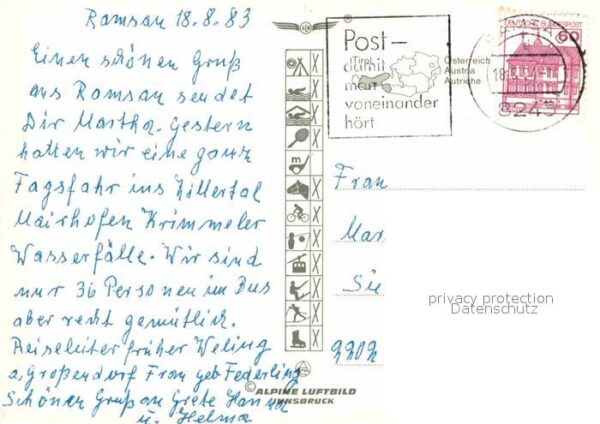 Ramsau 18.8.83
Einen schönen Gruß
aus Ramsau sendet
Dir Martha. Gestern
hatten wir eine ganze
Tagsfahr ins Zillertal
Mairhofen Krimmeler
Wasserfälle. Wir sind
nur 36 Personen im Bus
aber recht gemütlich.
Reiseleiter früher Weling
a. Großendorf Frau geb Federling
Schönen Gruß an Grete Hanna
u. Helma
Post–
damit
man
voneinander
hört
Tirol
Österreich
Austria
Autriche
DEUTSCHE BUNDESPOST
60
18.
8243
Frau
Mar
Sie
privacy protection
Datenschutz
©ALPINE LUFTBILD
INNSBRUCK